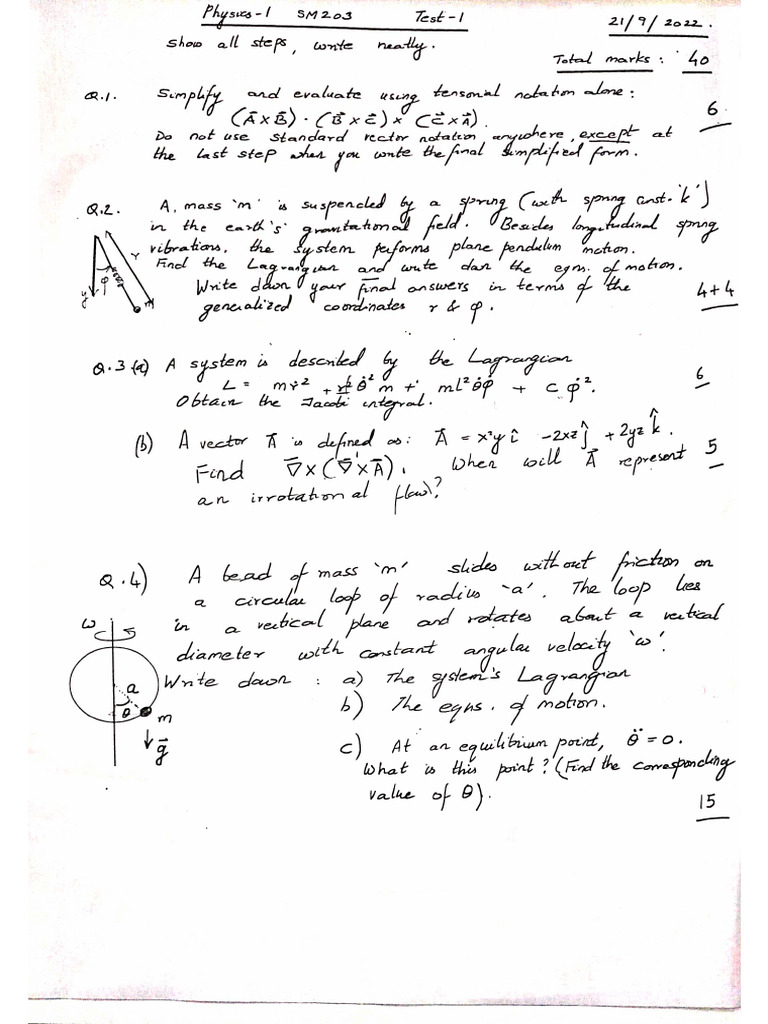 Physics-1 SM203 Test-1 21/9/2022.
Show all steps, write neatly.
Total marks: 40
Q.1. Simplify and evaluate using tensorial notation alone:
(A⃗ × B⃗) · (B⃗ × C⃗) × (C⃗ × A⃗)
6
Do not use standard vector notation anywhere, except at
the last step when you write the final simplified form.
Q.2. A mass 'm' is suspended by a spring (with spring const. 'k')
in the earth's gravitational field. Besides longitudinal spring
vibrations, the system performs plane pendulum motion.
Find the Lagrangian and write dan the eqns. of motion.
Write down your final answers in terms of the
generalized coordinates r & φ.
4+4
r
φ
m
Q.3 (a) A system is described by the Lagrangian
L = mṙ² + θ̇² m + ml²θ̇φ̇ + c φ̇².
6
Obtain the Jacobi integral.
(b) A vector A⃗ is defined as: A⃗ = x²y î - 2xz ĵ + 2yz k̂.
Find ∇⃗ × (∇⃗ × A⃗). When will A⃗ represent
5
an irrotational flow?
Q.4) A bead of mass 'm' slides without friction on
a circular loop of radius 'a'. The loop lies
in a vertical plane and rotates about a vertical
diameter with constant angular velocity 'ω'.
Write down: a) The system's Lagrangian
b) The eqns. of motion.
c) At an equilibrium point, θ̈ = 0.
What is this point? (Find the corresponding
value of θ).
15
ω
a
θ
m
g⃗